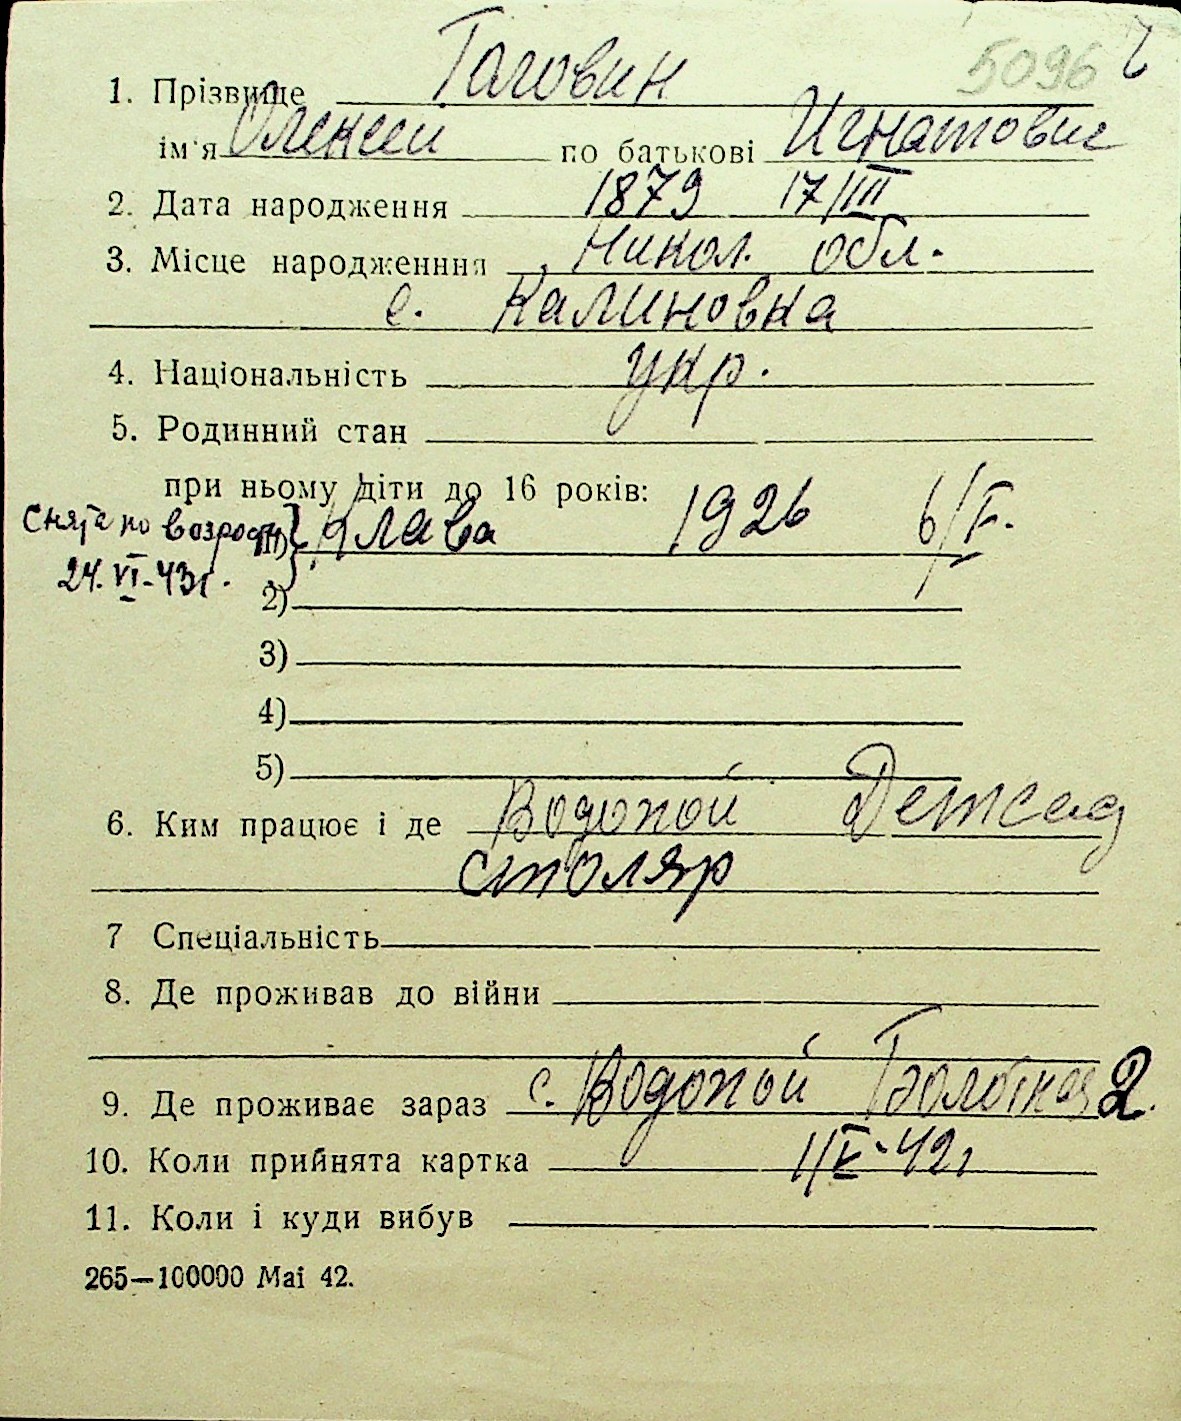 5096
1. Прізвище Гаговин
ім'я Олексей по батькові Игнатович
2. Дата народження 1879 17/III
3. Місце народженння Никол. обл.
с. Калиновка
4. Національність укр.
5. Родинний стан
при ньому діти до 16 років:
Снята по возрасту 1) Клава 1926 6/V.
24.VI-43г. 2)
3)
4)
5)
6. Ким працює і де Водопой Детсад
столяр
7 Спеціальність
8. Де проживав до війни
9. Де проживає зараз с. Водопой Болотная 2.
10. Коли прийнята картка 1/V-42г
11. Коли і куди вибув
265—100000 Mai 42.